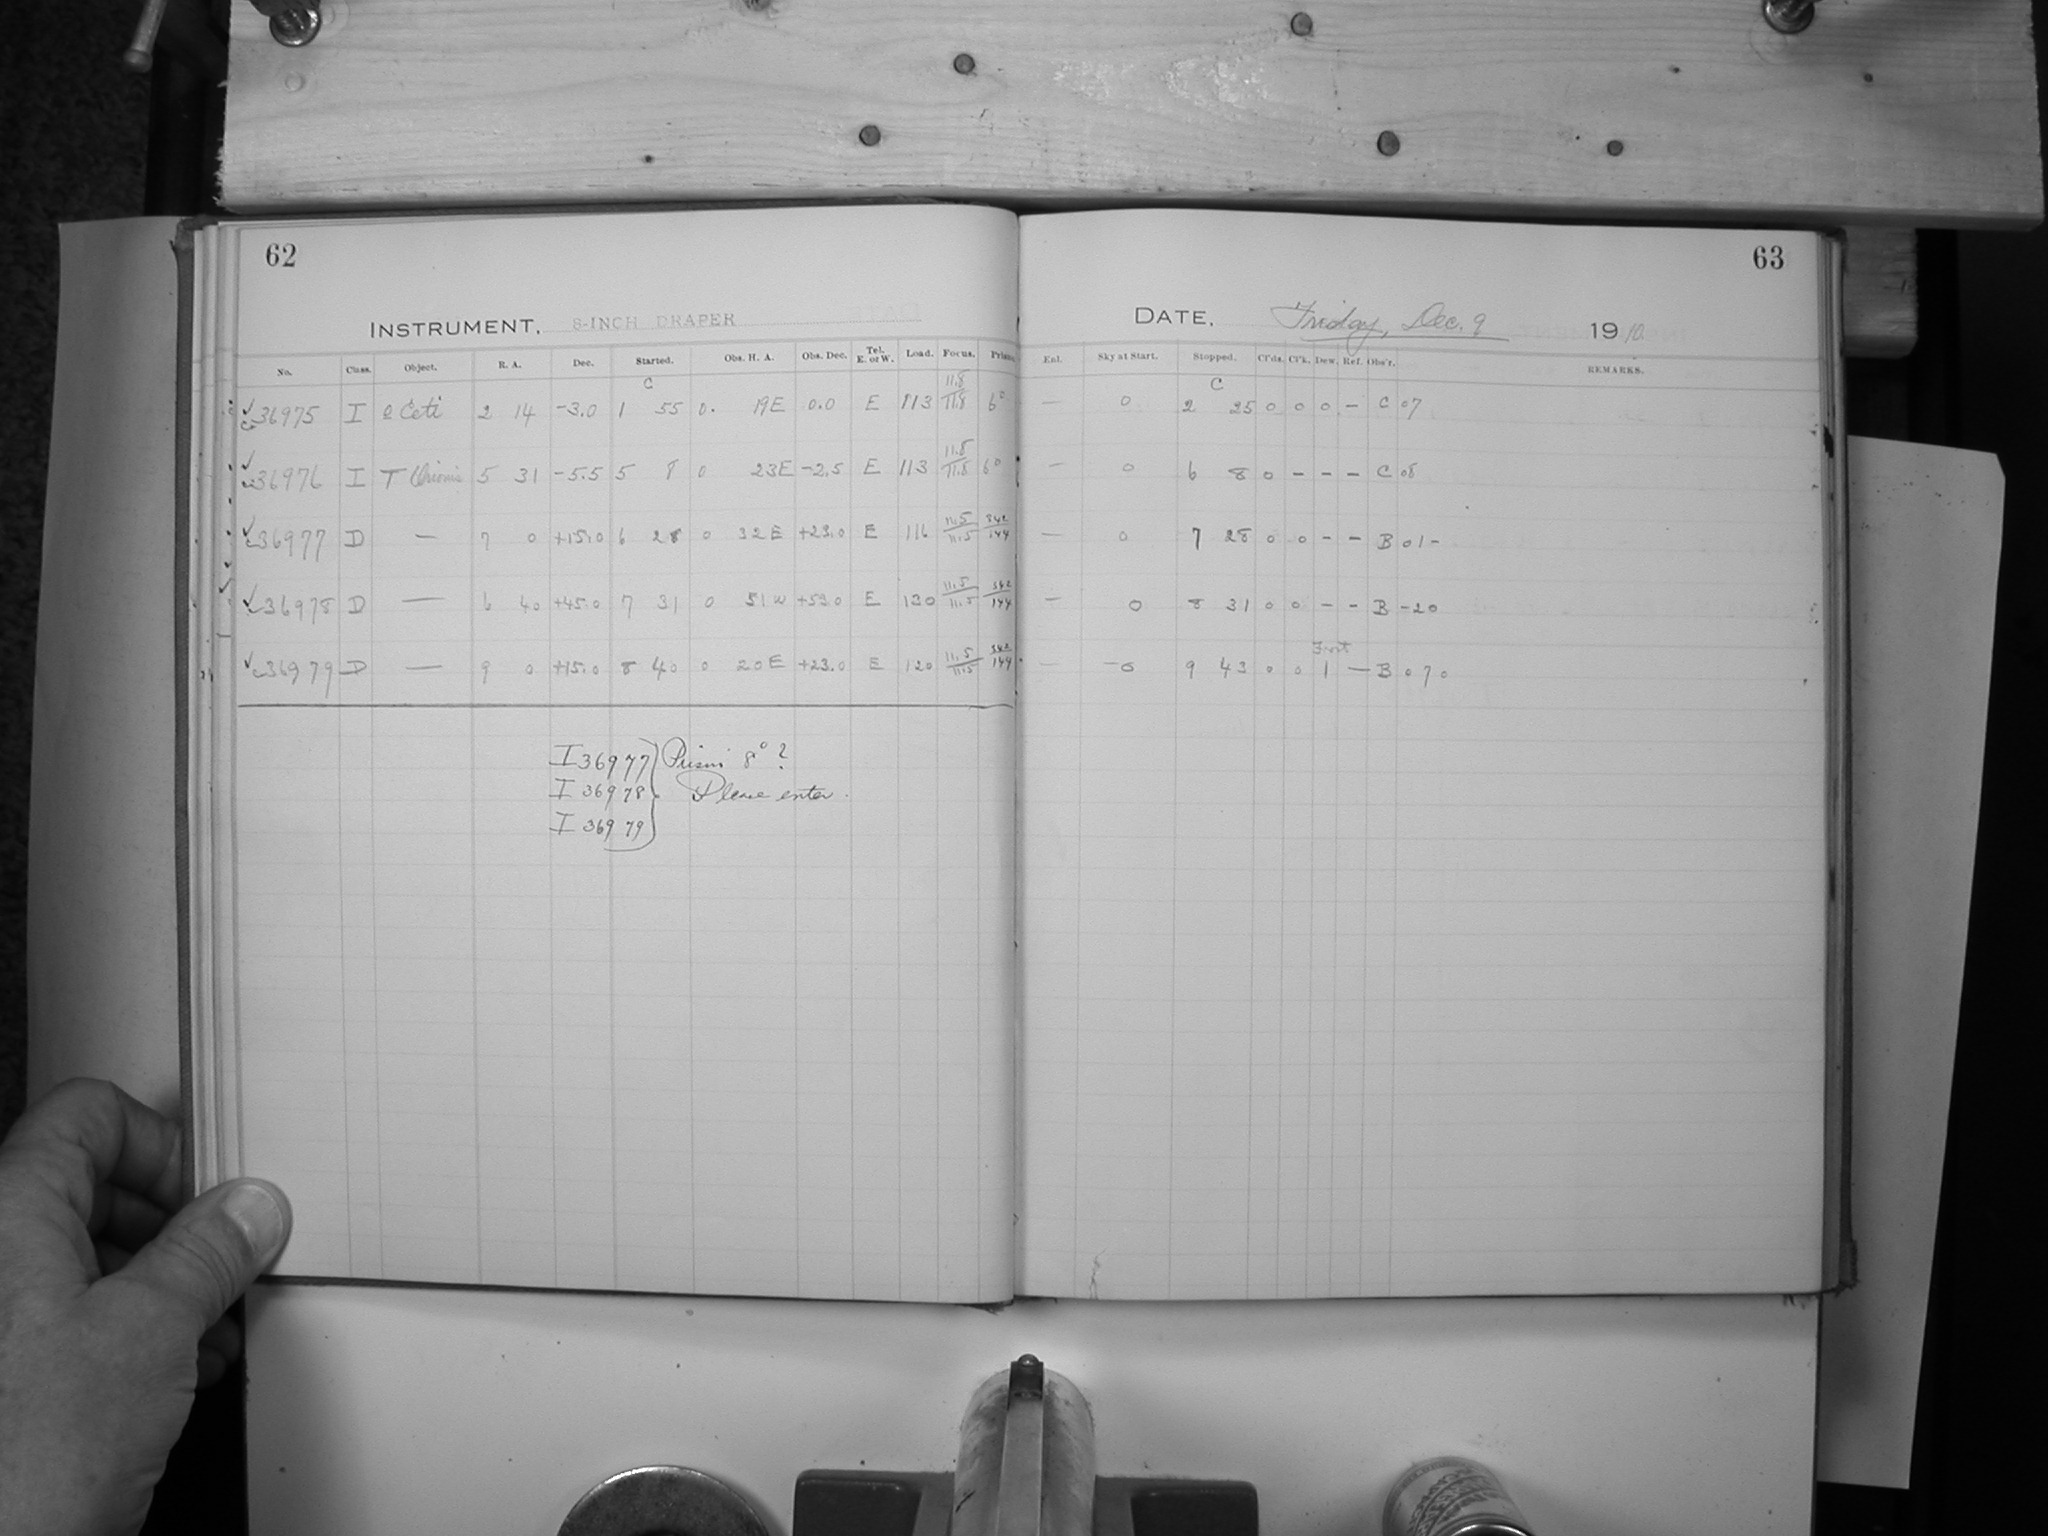 62
63
INSTRUMENT, 8-INCH DRAPER
DATE, Friday, Dec. 9 1910
No. Class. Object. R. A. Dec. Started. Obs. H. A. Obs. Dec. Tel. E. or W. Load. Focus. Prism. Enl. Sky at Start. Stopped. Cl'ds. Cl'k. Dew. Ref. Obs'r. REMARKS.
C C
36975 I o Ceti 2 14 -3.0 1 55 0. 19E 0.0 E 113 11.8/11.8 6° — 0 2 25 0 0 0 - C 07
36976 I T Orionis 5 31 -5.5 5 8 0 23E -2.5 E 113 11.8/11.8 6° — 0 6 8 0 - - - C 08
36977 D — 7 0 +15.0 6 28 0 32E +23.0 E 116 11.5/11.5 342/144 — 0 7 28 0 0 - - B 01-
36978 D — 6 40 +45.0 7 31 0 51W +53.0 E 120 11.5/11.5 342/144 — 0 8 31 0 0 - - B -20
Frost
36979 D — 9 0 +15.0 8 40 0 20E +23.0 E 120 11.5/11.5 342/144 — 0 9 43 0 0 1 — B 070
I 36977 Prism 8° ?
I 36978 Please enter.
I 36979